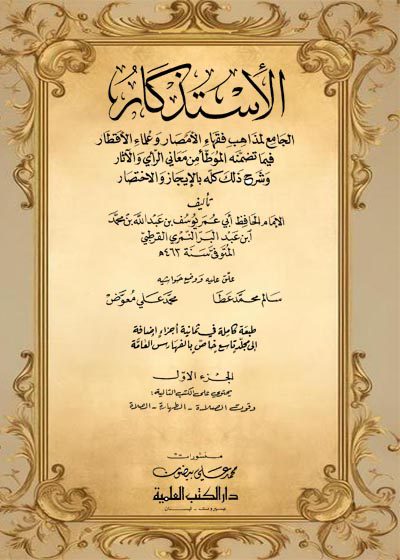 الاستذكار
الجامع لمذاهب فقهاء الأمصار وعلماء الأقطار
فيما تضمنه الموطأ من معاني الرأي والآثار
وشرح ذلك كله بالإيجاز والاختصار
تأليف
الإمام الحافظ أبي عمر يوسف بن عبد الله بن محمد
ابن عبد البر النمري القرطبي
المتوفى سنة ٤٦٣ هـ
علق عليه ووضع حواشيه
سالم محمد عطا محمد علي معوض
طبعة كاملة في ثمانية أجزاء إضافة
إلى مجلد تاسع خاص بالفهارس العامة
الجزء الأول
يحتوي على الكتب التالية:
وقوت الصلاة - الطهارة - الصلاة
منشورات
محمد علي بيضون
دار الكتب العلمية
بيروت - لبنان